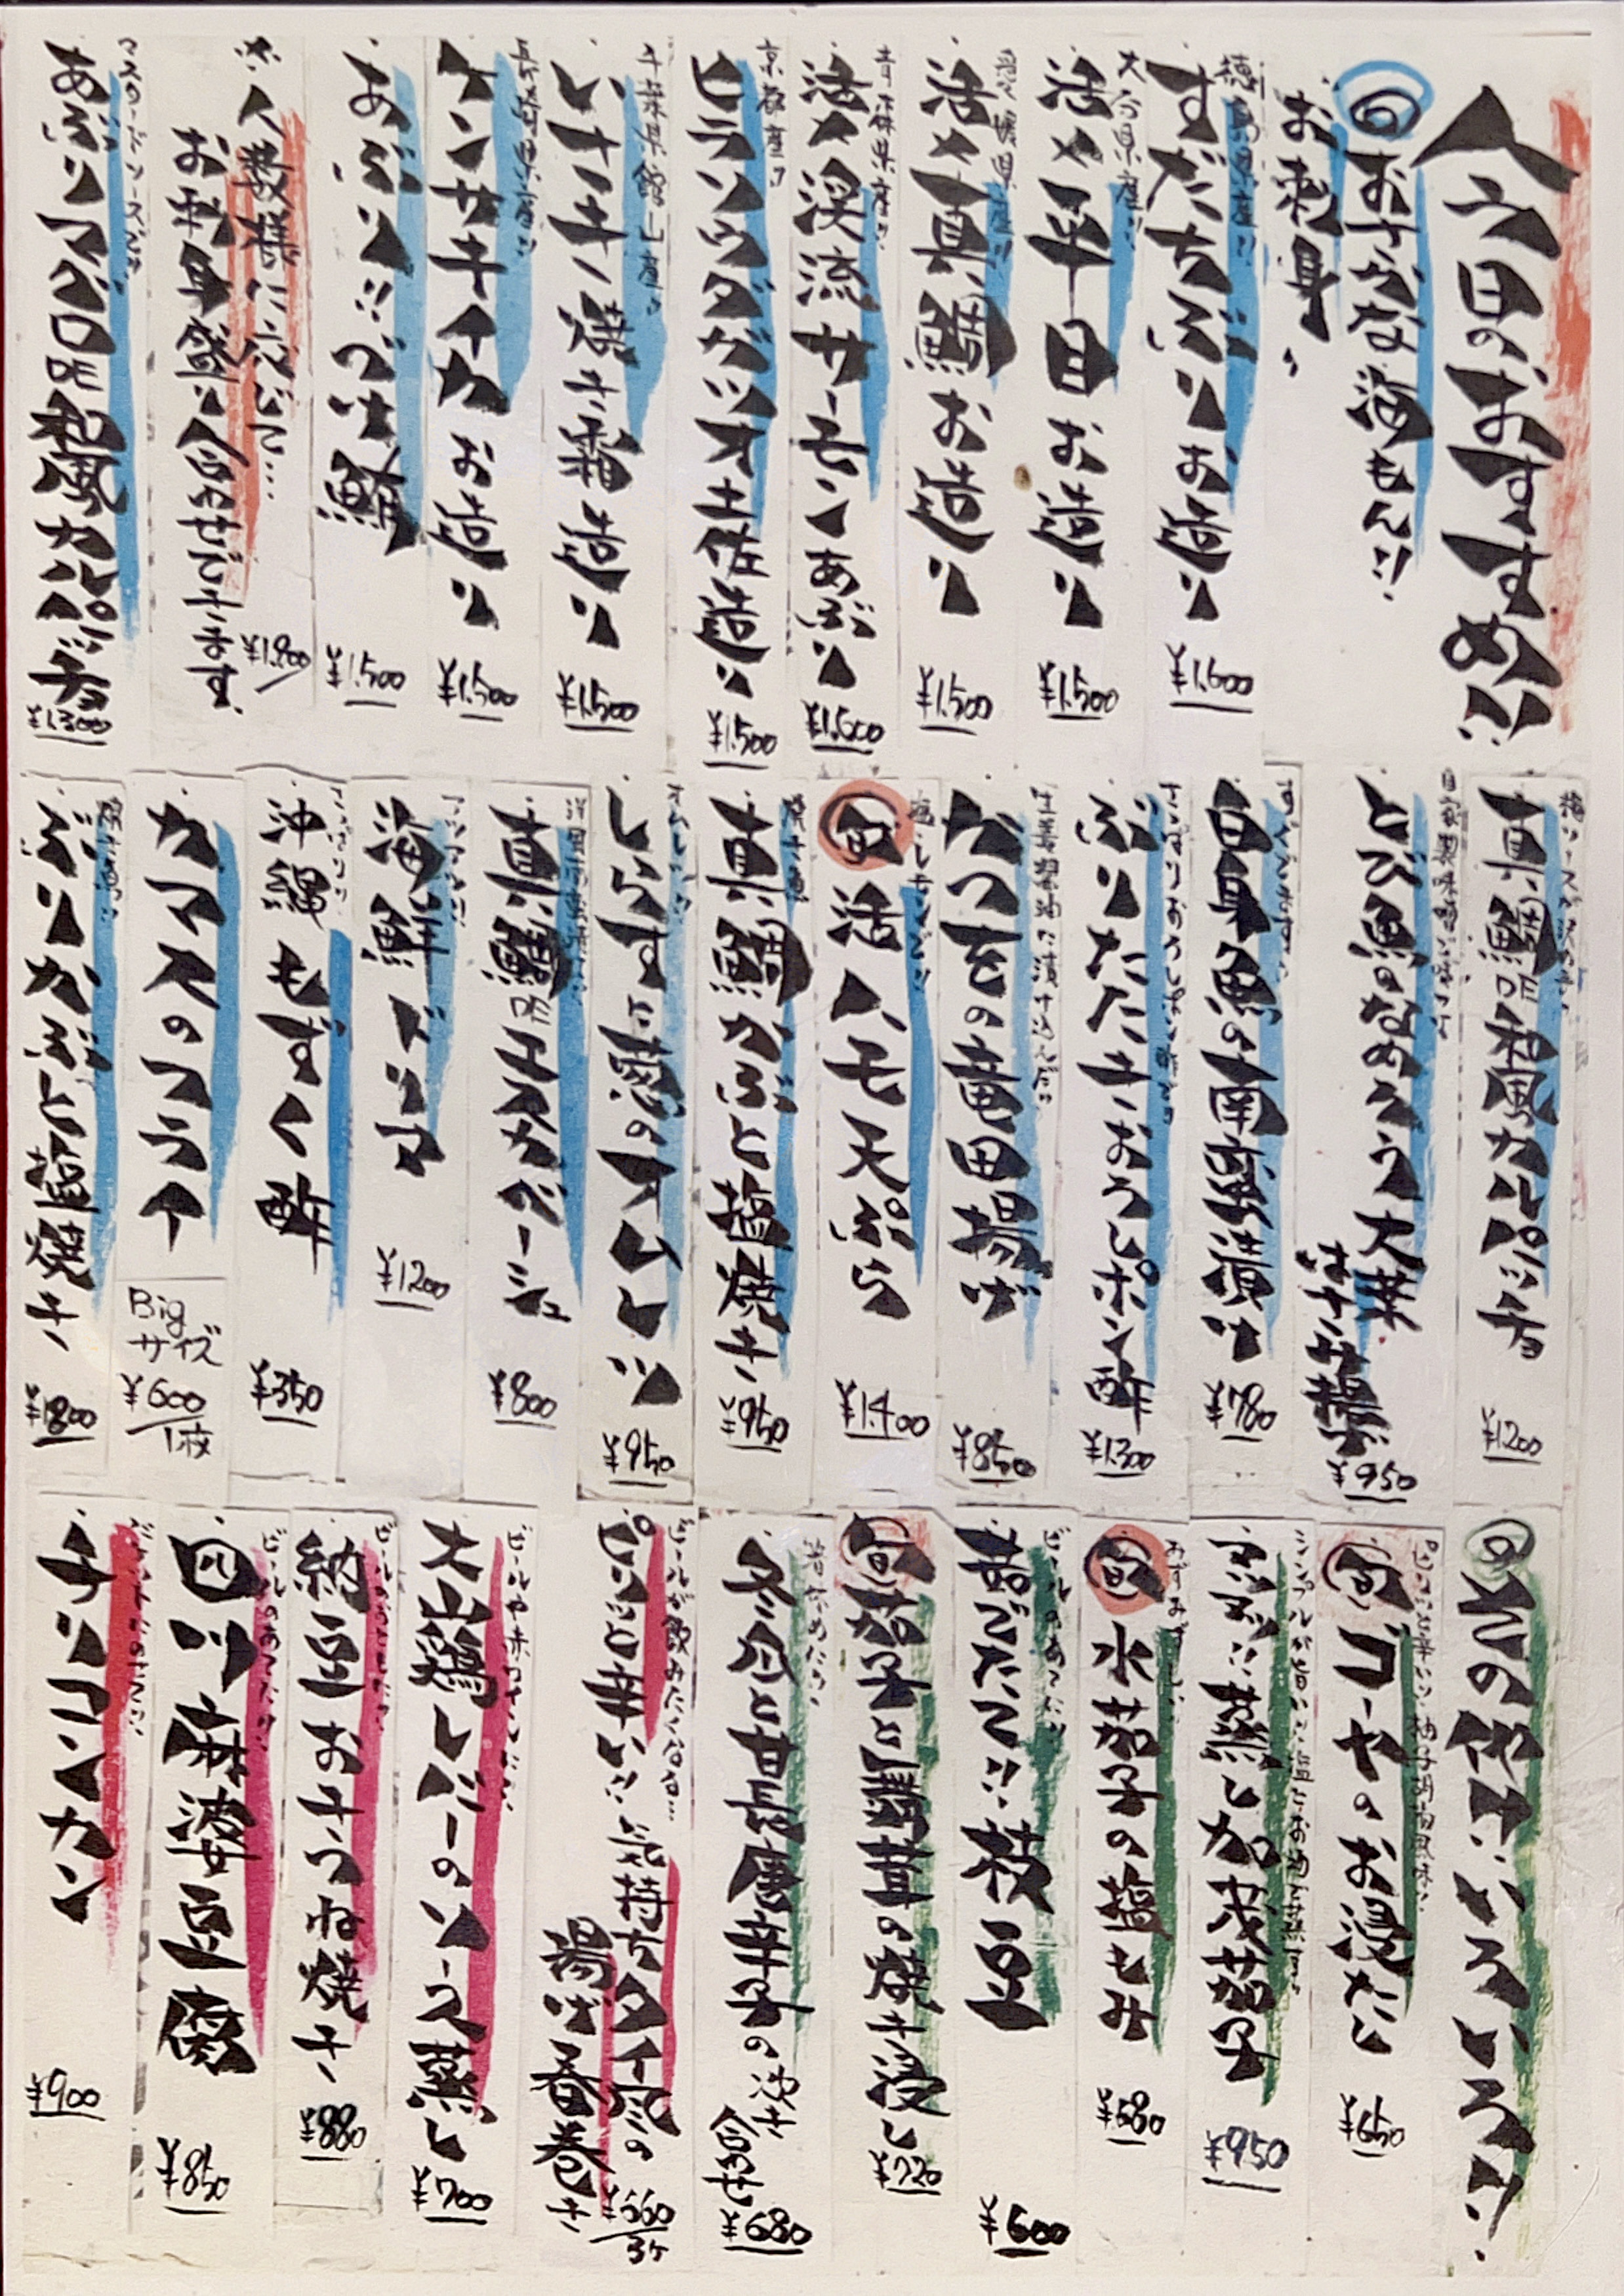 今日のおすすめ!!
おさかな海もん!!
お刺身
徳島県産!!
すだちぶりお造り
¥1.600
大分県産!!
活〆平目お造り
¥1.500
愛媛県産!!
活〆真鯛お造り
¥1.500
青森県産!!
活〆渓流サーモンあぶり
¥1.600
京都産!!
ヒラソウダガツオ土佐造り
¥1.500
千葉県館山産!!
いさき焼き霜造り
¥1.500
長崎県産!!
ケンサキイカお造り
¥1.500
あぶり!!づけ鮪
¥1.500
※人数様に応じて…
お刺身盛り合わせできます。
¥1.800/
マスタードソースだ!!
あぶりマグロDE和風カルパッチョ
¥1.300
梅ソースで
真鯛DE和風カルパッチョ
¥1200
自家製味噌
とび魚のなめろう大葉
はさみ揚げ
¥950
白身魚の南蛮漬け
¥780
ぶりたたきおろしポン酢
¥1.300
生姜醤油に漬け込んだ!!
かつをの竜田揚げ
¥850
塩レモンで!!
旬 活ハモ天ぷら
¥1.400
焼き魚
真鯛かぶと塩焼き
¥950
しらすと葱のオムレツ
¥950
真鯛DEエスカベーシュ
¥800
海鮮ドリア
¥1200
沖縄もずく酢
¥350
カマスのフライ
Big
サイズ
¥600
/1枚
焼き魚!!
ぶりかぶと塩焼き
その他いろいろ!!
ピリッと辛い!柚子胡椒風味!!
旬 ゴーヤのお浸たし
¥650
シンプルが旨い!!塩とお酒で蒸す!!
蒸し加茂茄子
¥950
旬 水茄子の塩もみ
¥580
ビールのあてだ!!
茹でたて!!枝豆
¥600
旬 茄子と舞茸の焼き浸し
¥720
冬瓜と甘長唐辛子の炊き
合わせ
¥680
ビールが飲みたくなる…
ピリッと辛い!!気持ちタイ風の
揚げ春巻き
¥660
/3ケ
ビールや赤ワインに!!
大山鶏レバーのソース蒸し
¥700
納豆おきつね焼き
¥880
ビールのあてだ!!
四川麻婆豆腐
¥850
チリコンカン
¥900